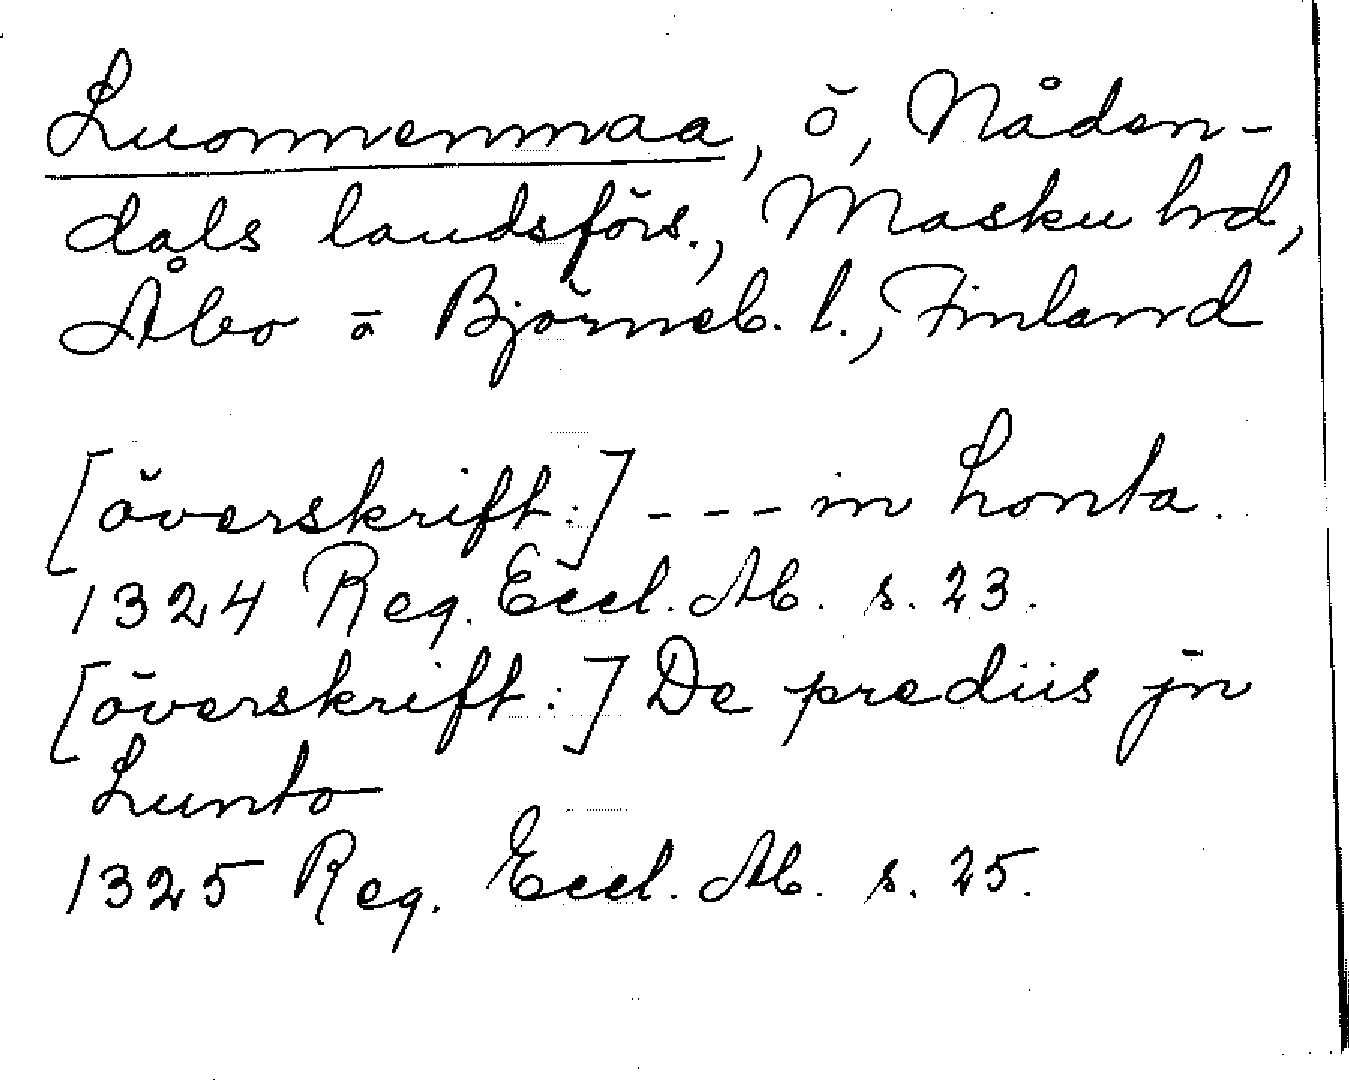 Luonnenmaa, ö, Nåden-
dals landsförs., Masku hrd,
Åbo o Björneb. l., Finland
[överskrift:] --- in Lonta.
1324 Reg. Eccl. Ab. s. 23.
[överskrift:] De prediis jn
Lunto
1325 Reg. Eccl. Ab. s. 25.